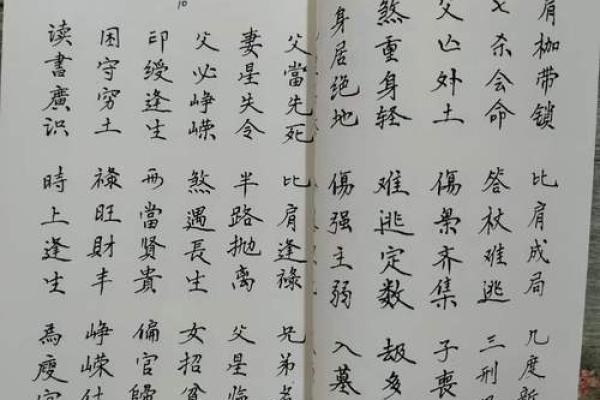 肩枷带锁 比肩成局 几度新
七杀会命 答杖难逃 三刑
父亡外土 傷枭齐集 子丧
煞重身轻 难逃定数 劫多
身居绝地 傷强主弱 入墓
10
父當先死 比肩逢禄 兄弟
妻星失令 半路抛离 父星临
父必峥嵘 煞遇長生 女招
印绶逢生 母當贤貴 偏官
困守穷土 禄旺財丰 峥嵘
读書廣识 時上逢生 為